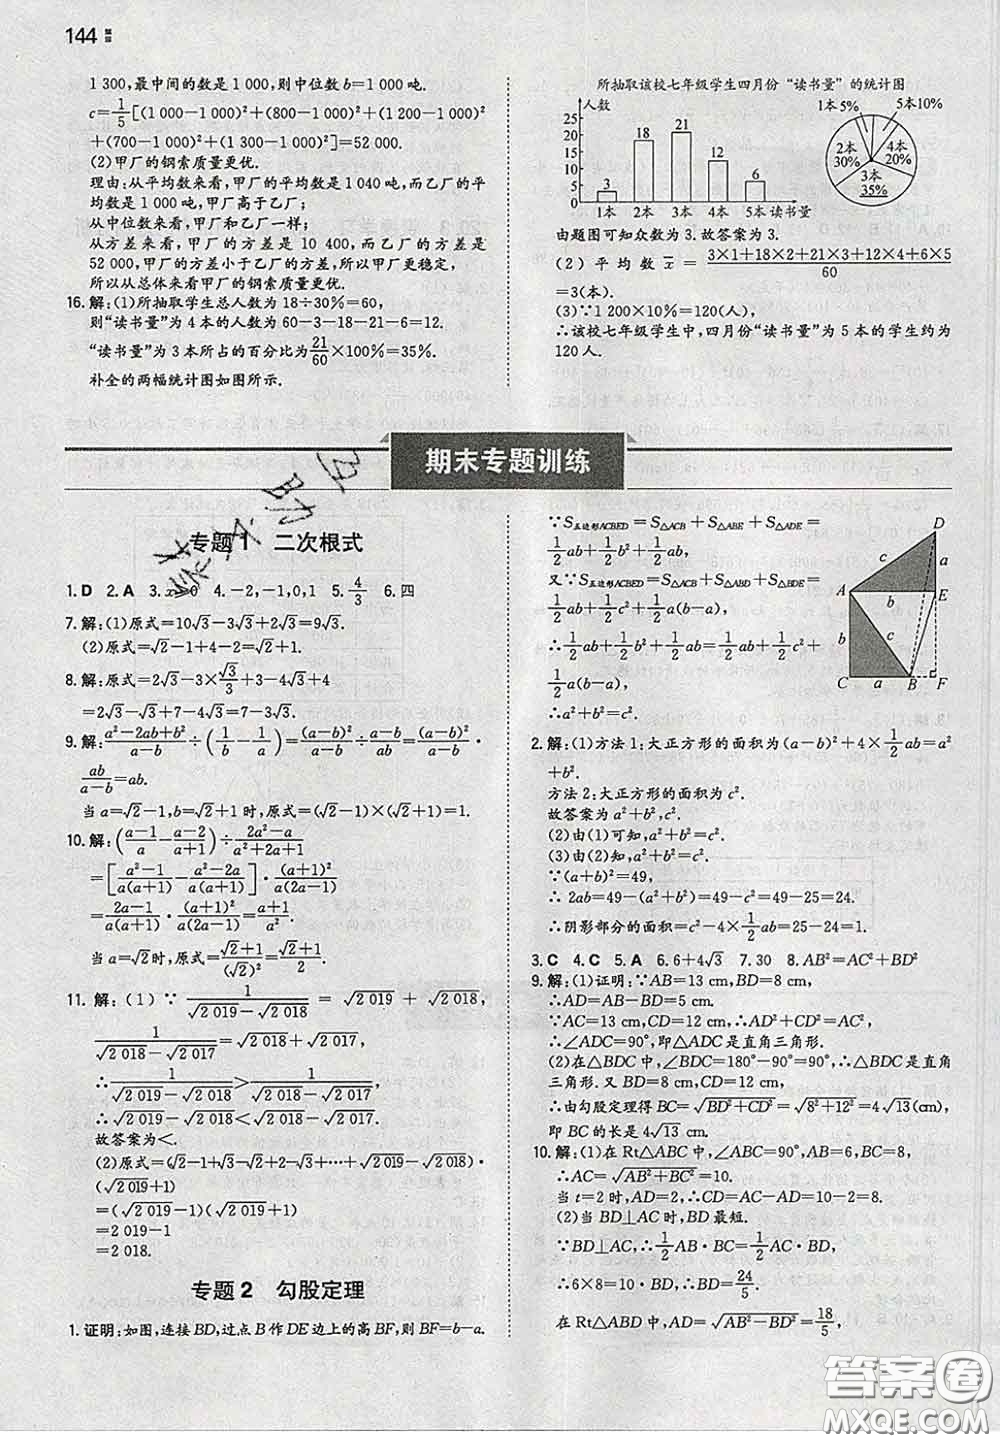 144
1 300,最中间的数是 1 000,则中位数 b=1 000 吨.
c=1/5[(1 000-1 000)²+(800-1 000)²+(1 200-1 000)²
+(700-1 000)²+(1 300-1 000)²]=52 000.
(2)甲厂的钢索质量更优.
理由:从平均数来看,甲厂的平均数是 1 040 吨,而乙厂的平
均数是 1 000 吨,甲厂高于乙厂;
从中位数来看,甲厂和乙厂一样;
从方差来看,甲厂的方差是 10 400,而乙厂的方差是
52 000,甲厂的方差小于乙厂的方差,所以甲厂更稳定,
所以从总体来看甲厂的钢索质量更优.
16.解:(1)所抽取学生总人数为 18÷30%=60,
则“读书量”为 4 本的人数为 60-3-18-21-6=12.
“读书量”为 3 本所占的百分比为21/60×100%=35%.
补全的两幅统计图如图所示.
所抽取该校七年级学生四月份“读书量”的统计图
人数
25
20
15
10
5
0
3
18
21
12
6
1本 2本 3本 4本 5本 读书量
1本5%
5本10%
2本
30%
4本
20%
3本
35%
由题图可知众数为 3.故答案为 3.
(2)平均数 x̄ = (3×1+18×2+21×3+12×4+6×5)/60
=3(本).
(3)∵1 200×10%=120(人),
∴该校七年级学生中,四月份“读书量”为 5 本的学生约为
120 人.
期末专题训练
专题1 二次根式
1.D 2.A 3.x≥0 4.-2,-1,0,1 5.4/3 6.四
7.解:(1)原式=10√3-3√3+2√3=9√3.
(2)原式=√2-1+4-2=√2+1.
8.解:原式=2√3-3×√3/3+3-√3+4
=2√3-√3+7-4√3=7-3√3.
9.解:(a²-2ab+b²)/(a-b)÷(1/b-1/a)=(a-b)²/(a-b)÷(a-b)/ab=(a-b)²/(a-b)·
ab/(a-b)=ab.
当 a=√2-1,b=√2+1 时,原式=(√2-1)×(√2+1)=1.
10.解:((a-1)/a-(a-2)/(a+1))÷(2a²-a)/(a²+2a+1)
=[(a²-1)/(a(a+1))-(a²-2a)/(a(a+1))]·(a+1)²/(a(2a-1))
=(2a-1)/(a(a+1))·(a+1)²/(a(2a-1))=(a+1)/a².
当 a=√2时,原式=(√2+1)/(√2)²=(√2+1)/2.
11.解:(1)∵1/(√2 019-√2 018)=√2 019+√2 018,
1/(√2 018-√2 017)=√2 018+√2 017,
∴1/(√2 019-√2 018)>1/(√2 018-√2 017),
∴√2 019-√2 018<√2 018-√2 017.
故答案为<.
(2)原式=(√2-1+√3-√2+…+√2 019-√2 018)·
(√2 019+1)
=(√2 019-1)(√2 019+1)
=2 019-1
=2 018.
专题2 勾股定理
1.证明:如图,连接 BD,过点 B 作 DE 边上的高 BF,则 BF=b-a.
∵S五边形ACBED=S△ACB+S△ABE+S△ADE=
1/2ab+1/2b²+1/2ab,
又∵S五边形ACBED=S△ACB+S△ABD+S△BDE=
1/2ab+1/2c²+1/2a(b-a),
∴1/2ab+1/2b²+1/2ab=1/2ab+1/2c²+
1/2a(b-a),
∴a²+b²=c².
D
c
a
A
b
E
b
c
C
a
B
F
2.解:(1)方法 1:大正方形的面积为(a-b)²+4×1/2ab=a²
+b².
方法 2:大正方形的面积为 c².
故答案为 a²+b²,c².
(2)由(1)可知,a²+b²=c².
故答案为 a²+b²=c².
∵(a+b)²=49,
∴2ab=49-(a²+b²)=49-c²=49-25=24,
∴阴影部分的面积=c²-4×1/2ab=25-24=1.
3.C 4.C 5.A 6.6+4√3 7.30 8.AB²=AC²+BD²
9.解:(1)证明:∵AB=13 cm,BD=8 cm,
∴AD=AB-BD=5 cm.
∵AC=13 cm,CD=12 cm,∴AD²+CD²=AC²,
∴∠ADC=90°,即△ADC 是直角三角形.
(2)在△BDC 中,∠BDC=180°-90°=90°,∴△BDC 是直角
三角形.又 BD=8 cm,CD=12 cm,
∴由勾股定理得 BC=√(BD²+CD²)=√(8²+12²)=4√13(cm),
即 BC 的长是 4√13 cm.
10.解:(1)在 Rt△ABC 中,∠ABC=90°,AB=6,BC=8,
∴AC=√(AB²+BC²)=10.
当 t=2 时,AD=2,∴CD=AC-AD=10-2=8.
(2)当 BD⊥AC 时,BD 最短.
∵BD⊥AC,∴1/2AB·BC=1/2AC·BD,
∴6×8=10·BD,∴BD=24/5.
在 Rt△ABD 中,AD=√(AB²-BD²)=18/5,
答案圈
MXQE.COM